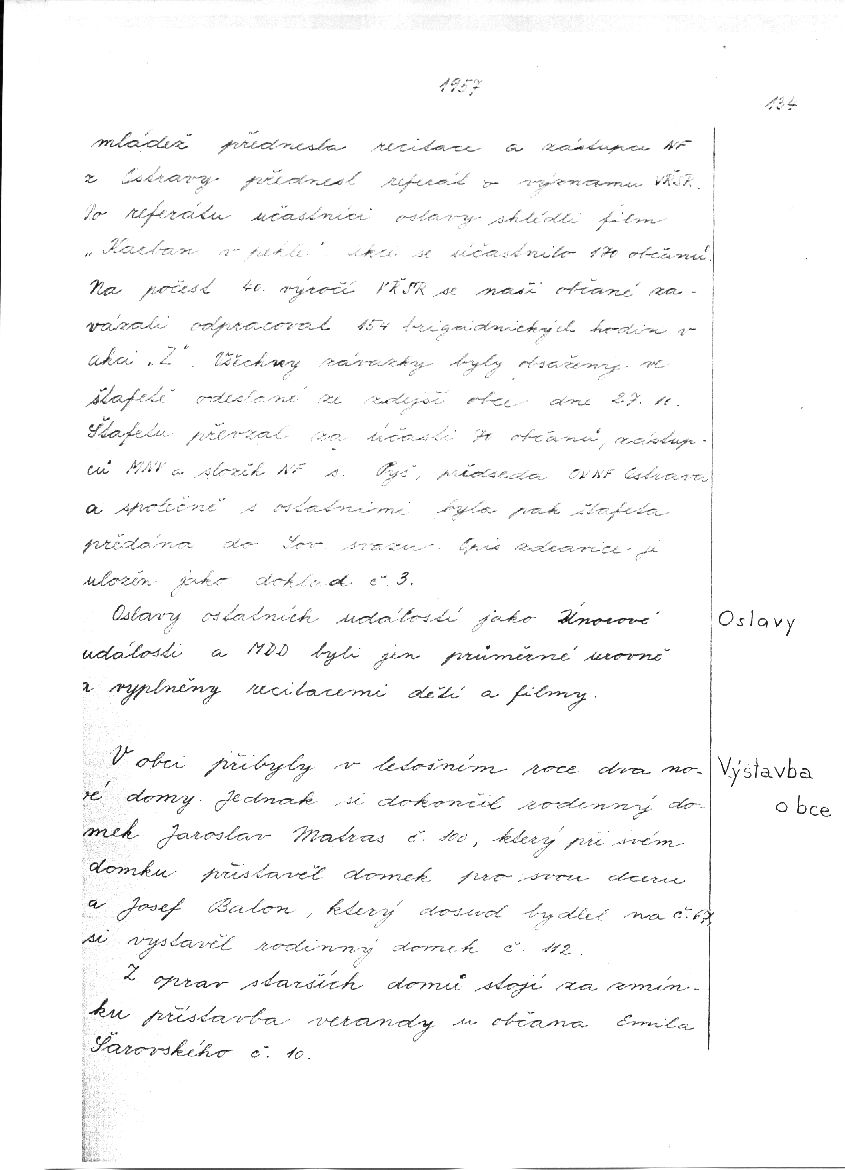 1957
134
mládež přednesla recitace a zástupce NF
z Ostravy přednesl referát o významu VŘSR.
Po referátu účastníci oslavy shlédli film
„Kaeban v pekle" akce se účastnilo 170 občanů.
Na počest 40. výročí VŘSR se naši občané za-
vázali odpracovat 154 brigádnických hodin v
akci „Z". Všechny závazky byly obsaženy ve
štafetě odeslané ze zdejší obce dne 27. 10.
Štafetu převzal za účasti 70 občanů, zástup-
ců MNV a složek NF s. Pyš, předseda OVNF Ostrava
a společně s ostatními byla pak štafeta
předána do Sov. svazu. Opis zdravice je
uložen jako doklad č. 3.
Oslavy ostatních událostí jako Únorové
události a MDD byli jen průměrné urovně
z vyplněny recitacemi dětí a filmy.
Oslavy
V obci přibyly v letošním roce dva no-
vé domy. Jednak si dokončil rodenný do-
mek Jaroslav Matras č. 100, který při svém
domku přistavěl domek pro svou dceru
a Josef Balon, který dosud bydlel na č. 67,
si vystavěl rodinný domek č. 112.
Výstavba
obce
Z oprav starších domů stojí za zmín-
ku přístavba verandy u občana Emila
Šarovského č. 10.